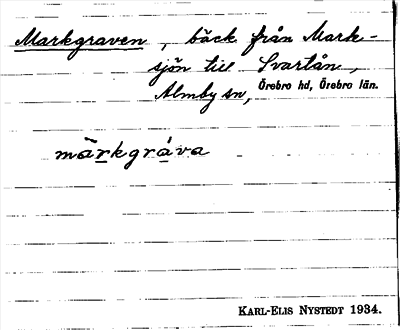 Markgraven, bäck från Mark-
sjön till Svartån,
Almby sn, Örebro hd, Örebro län.
märkgráva
KARL-ELIS NYSTEDT 1934.